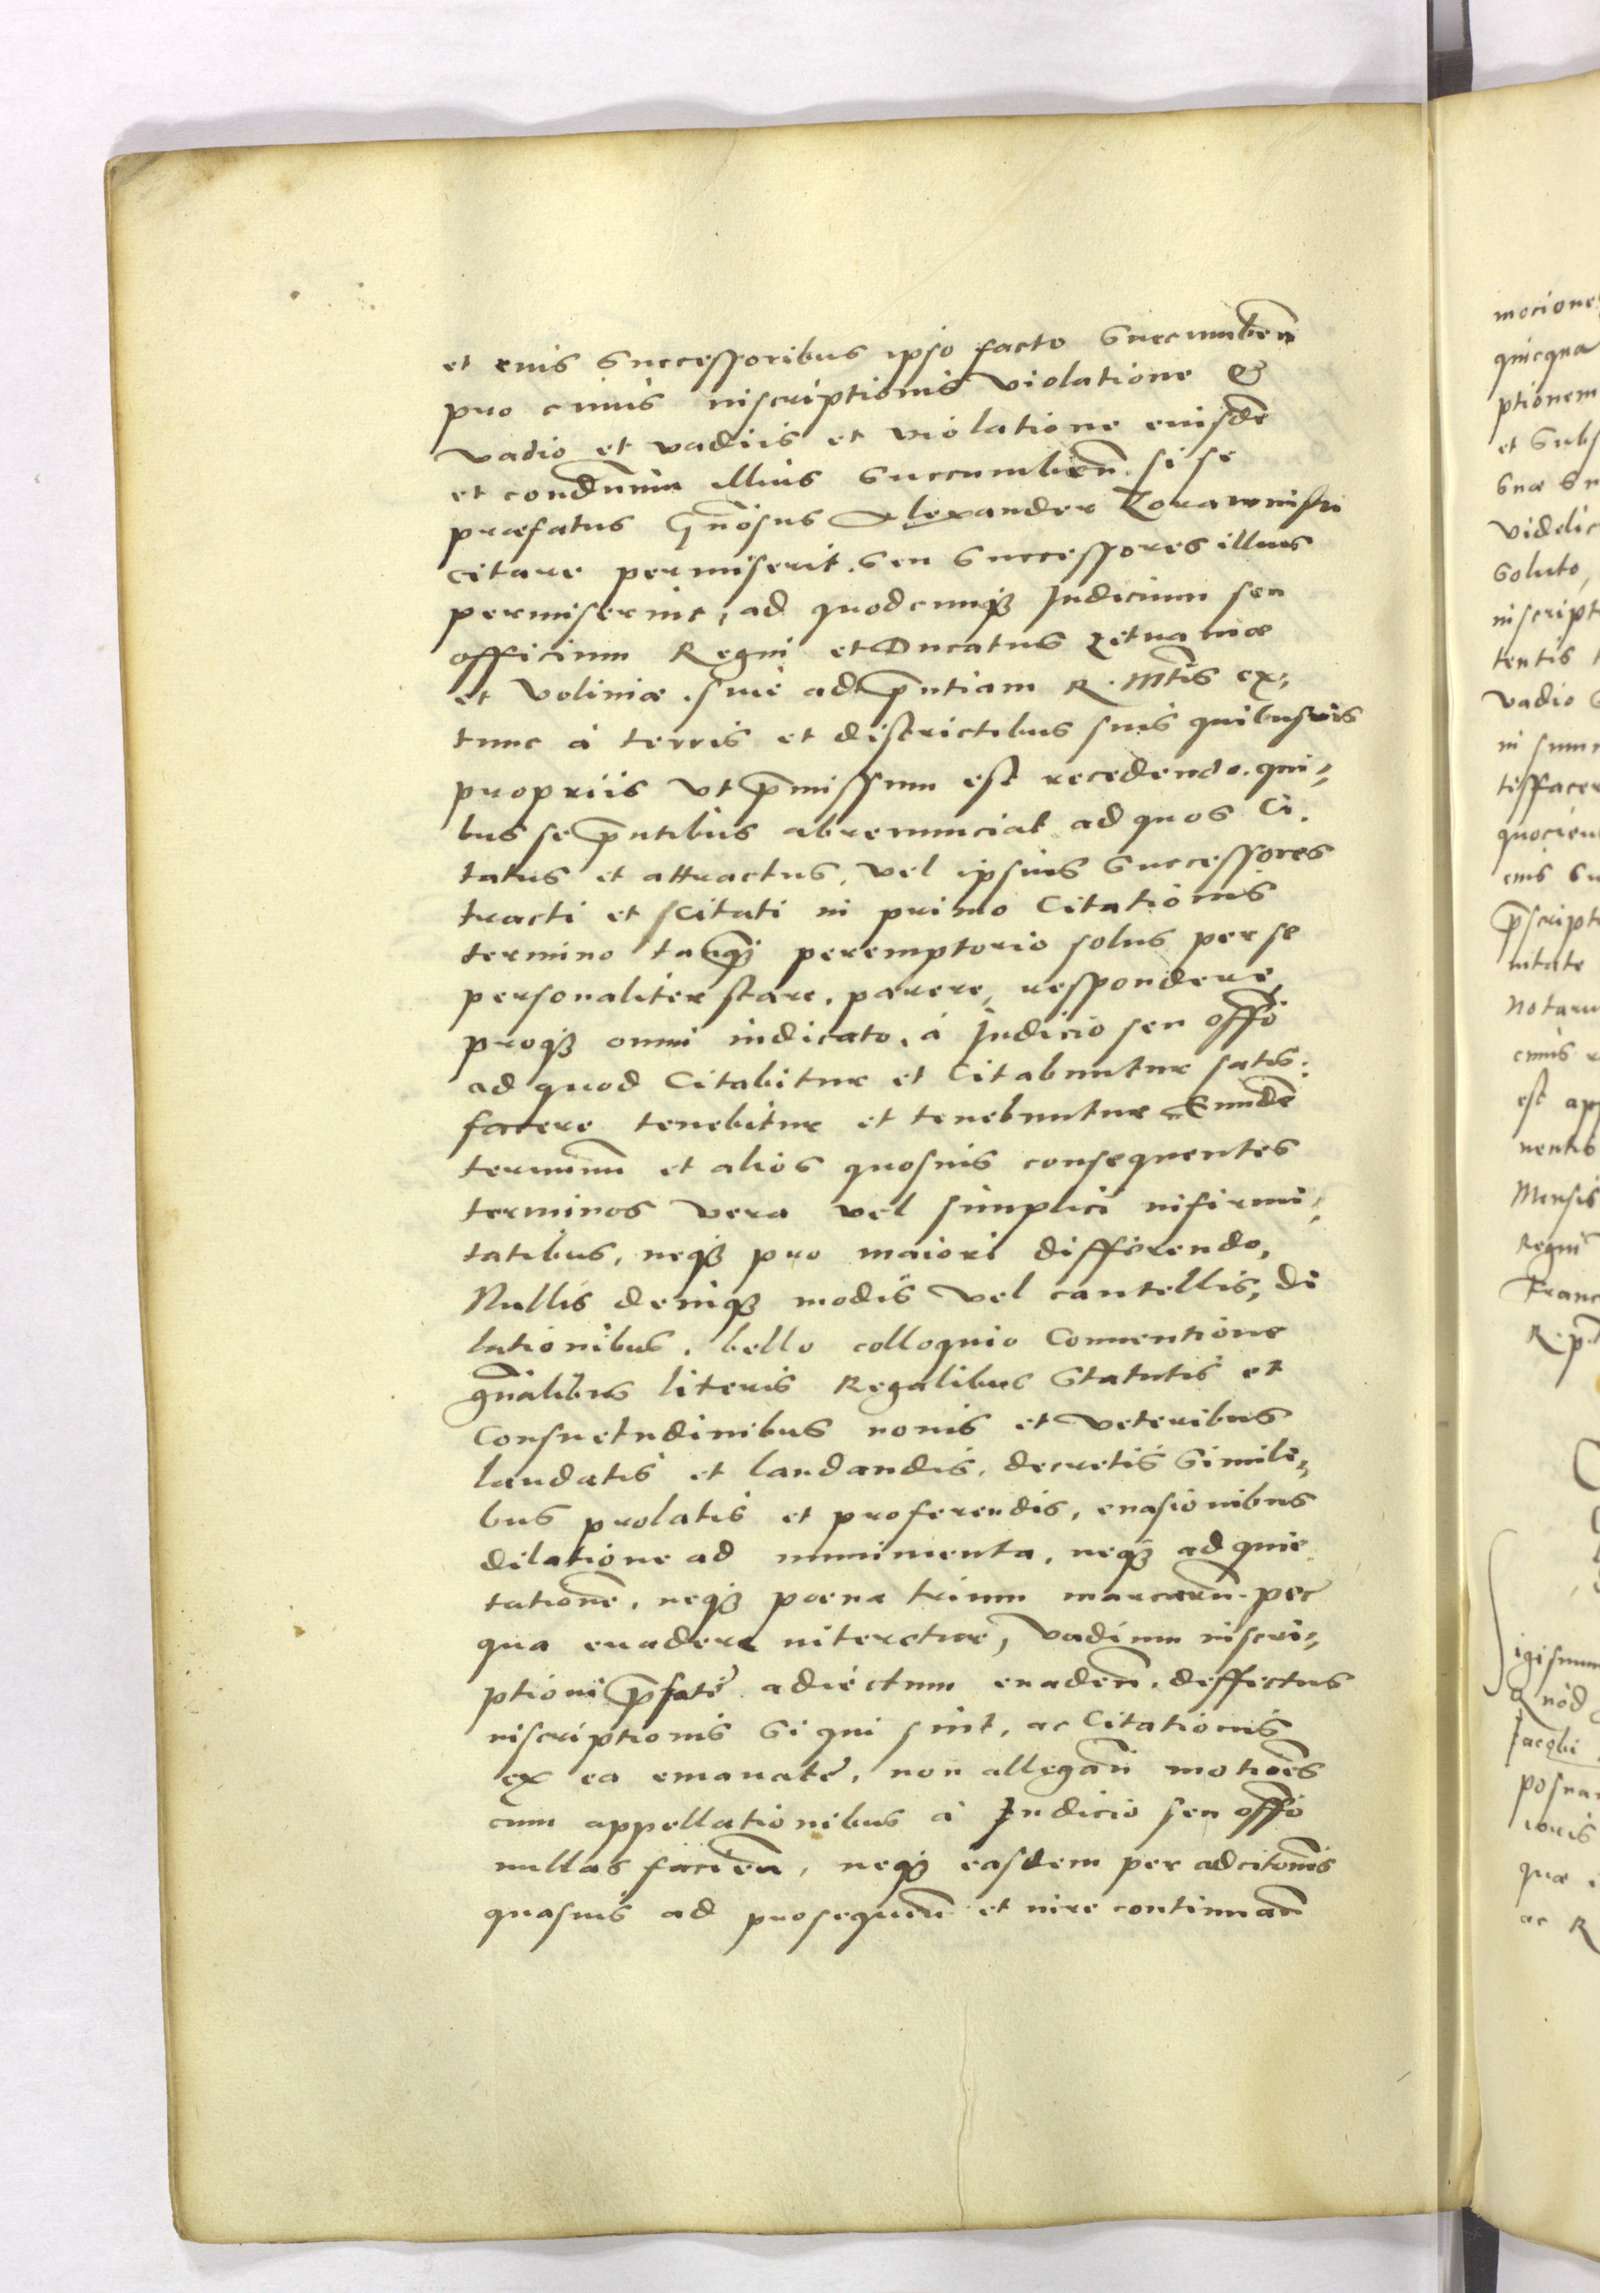 et eius successoribus ipso facto succumbeñ
pro cuius inscriptionis violatione &
vadio et vadiis et violatione eiusdē
et condūnim illius succumbeñ. si se
præfatus Gñosus Alexander Zorawnisky
citare permiserit. seu successores illius
permiserint, ad quodcunqꝫ Judicium seu
officium Regni et Ducatus Letuaniæ
et Voliniæ. siue ad p̄ntiam R. Mtis ex,
tunc á terris et districtibus suis quibusuis
propriis vt p̄missum est recedendo. qui,
bus se p̄ntibus abrenunciat ad quos Ci.
tatus et attractus. vel ipsius successores
tracti et scitati in primo Citationis
termino tanqꝫ peremptorio solus per se
personaliter stare. parere, respondere,
proqꝫ omni iudicato. á Judicio seu offō
ad quod Citabitur et Citabuntur satis.
facere tenebitur et tenebuntur Eundē
terminū et alios quosuis consequentes
terminos vera vel simplici infirmi,
tatibus, neqꝫ pro maiori differendo,
Nullis deniqꝫ modis vel cautellis, di
lationibus. bello colloquio Conuentione
gñalibus literis Regalibus Statutis et
Consuetudinibus nouis et veteribus
laudatis et laudandis. decretis simili,
bus prolatis et proferendis, euasionibus
dilatione ad munimenta. neqꝫ ad quie
tationē. neqꝫ poena trium marcarū. per
qua euadere niteretur, vadium inscri,
ptioni p̄fate adiectum euadeñ. deffectus
inscriptionis si qui sint. ac Citationis
ex ea emanate. non allegañ motiões
cum appellationibus á Judicio seu offō
nullas facieñ, neqꝫ easdem per adcitōnis
quasuis ad prosequeñ et iure continuañ
mocione
quicqua
ptionem
et subs
videlic
soluto,
inscript
tentis
vadio
in sum
tisfacer
quocien
eius su
p̄script
notar
cuius
est app
nentis
Mensis
Regni
Franc
igismun
Quod
Jacobi
posna
quæ
ac R